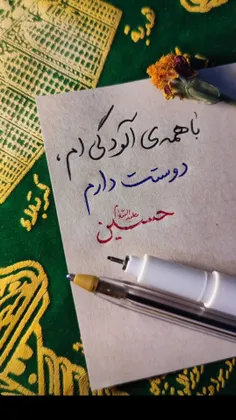 با همه‌ی آلودگی ام،
دوستت دارم
حسین علیه السلام
کربلاء